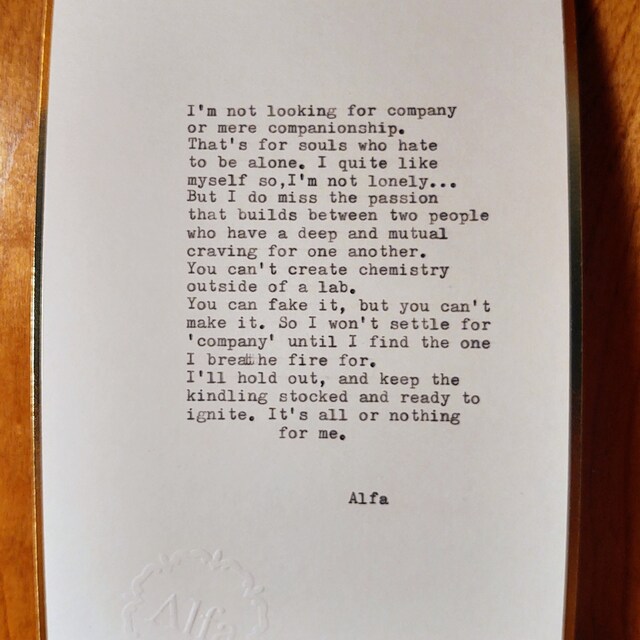 I'm not looking for company
or mere companionship.
That's for souls who hate
to be alone. I quite like
myself so,I'm not lonely...
But I do miss the passion
that builds between two people
who have a deep and mutual
craving for one another.
You can't create chemistry
outside of a lab.
You can fake it, but you can't
make it. So I won't settle for
'company' until I find the one
I breathe fire for.
I'll hold out, and keep the
kindling stocked and ready to
ignite. It's all or nothing
for me.
Alfa
Alfa